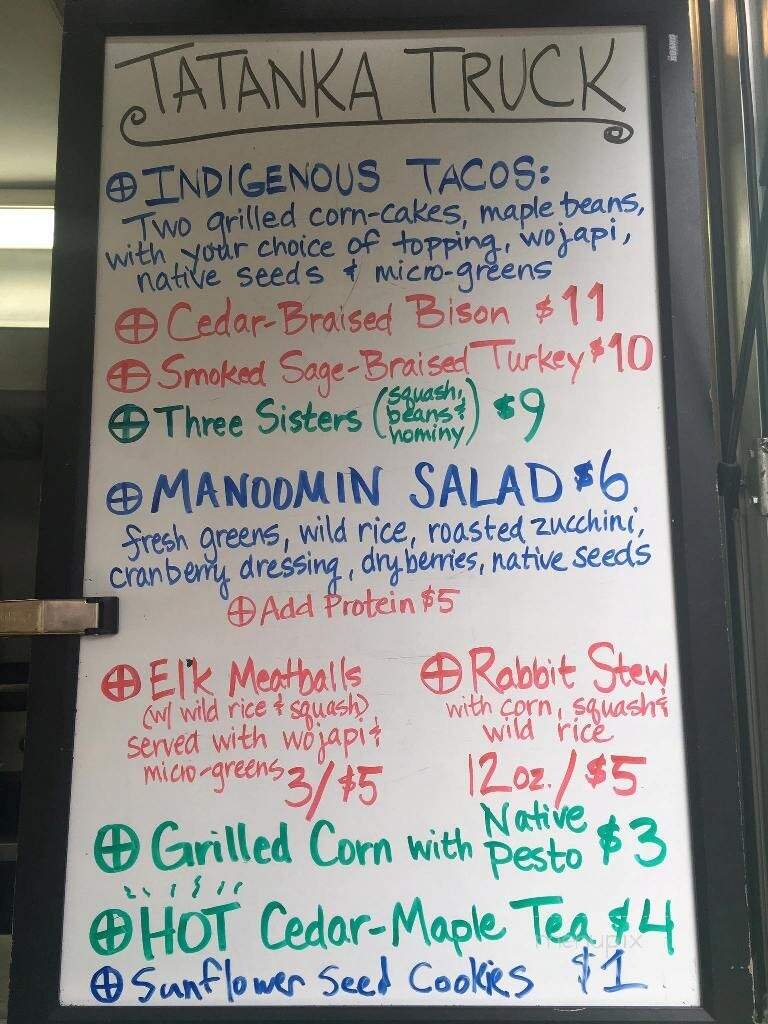 TATANKA TRUCK
⊕ INDIGENOUS TACOS:
Two grilled corn-cakes, maple beans,
with your choice of topping, wojapi,
native seeds & micro-greens
⊕ Cedar-Braised Bison $11
⊕ Smoked Sage-Braised Turkey $10
⊕ Three Sisters (squash, beans & hominy) $9
⊕ MANOOMIN SALAD $6
fresh greens, wild rice, roasted zucchini,
cranberry dressing, dry berries, native seeds
⊕ Add Protein $5
⊕ Elk Meatballs
(w/ wild rice & squash)
served with wojapi &
micro-greens 3/$5
⊕ Rabbit Stew
with corn, squash &
wild rice
12 oz. / $5
⊕ Grilled Corn with Native Pesto $3
⊕ HOT Cedar-Maple Tea $4
⊕ Sunflower Seed Cookies $1
menupix